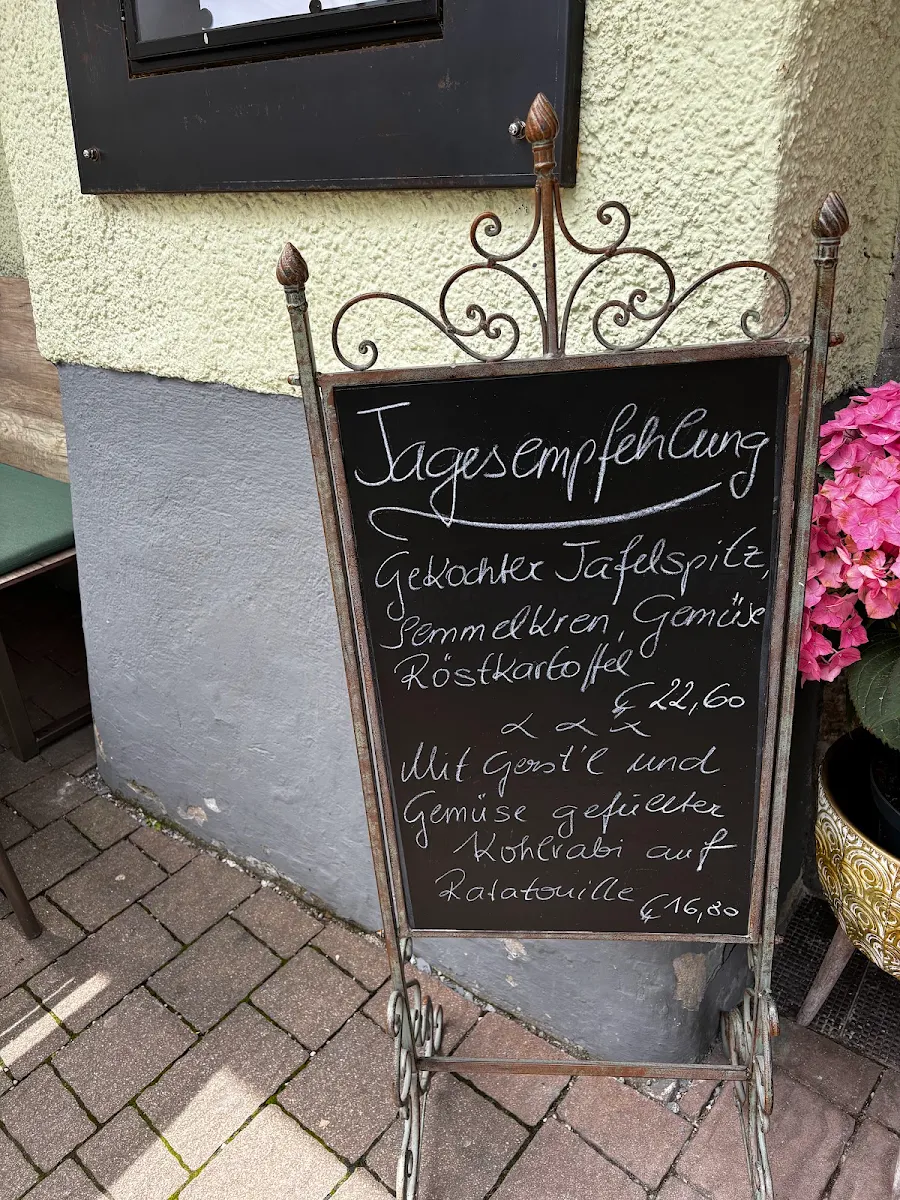 Tagesempfehlung
Gekochter Tafelspitz,
Semmelkren, Gemüse
Röstkartoffel
€ 22,60
Mit Gerst'l und
Gemüse gefüllter
Kohlrabi auf
Ratatouille
€ 16,80